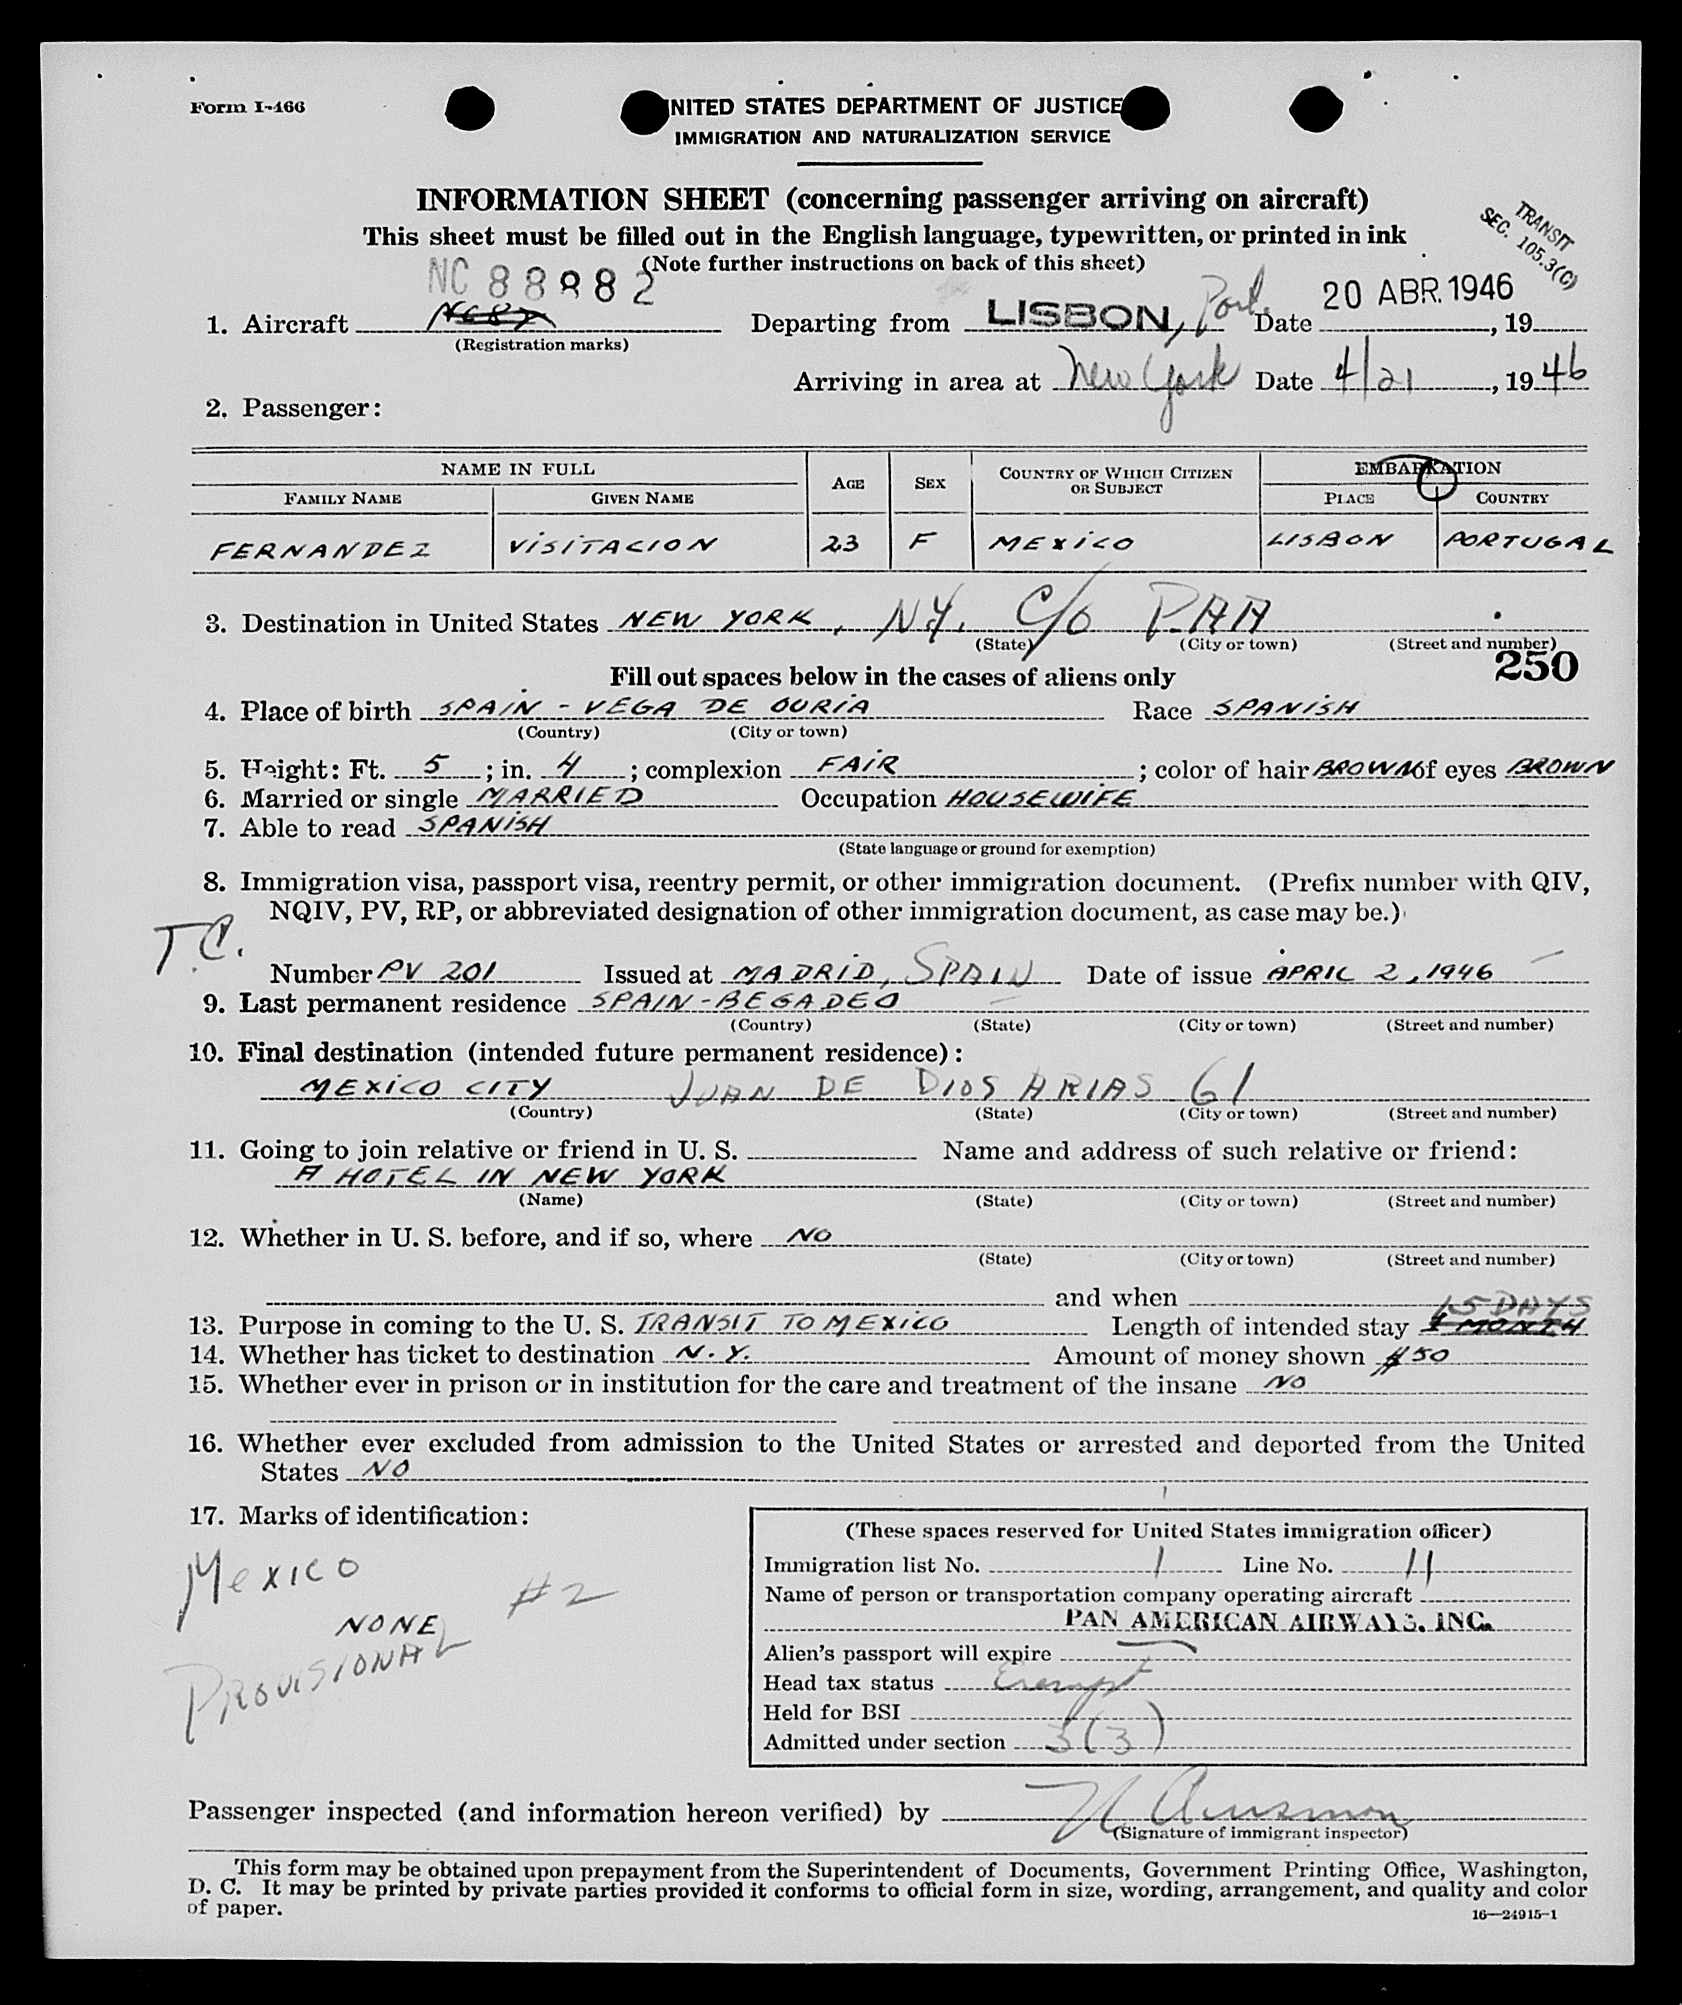 Form I-466
UNITED STATES DEPARTMENT OF JUSTICE
IMMIGRATION AND NATURALIZATION SERVICE
INFORMATION SHEET (concerning passenger arriving on aircraft)
This sheet must be filled out in the English language, typewritten, or printed in ink
(Note further instructions on back of this sheet)
TRANSIT
SEC. 105.3(C)
NC 88882
1. Aircraft
(Registration marks)
Departing from LISBON, Port. Date 20 ABR. 1946, 19
Arriving in area at New York Date 4/21, 1946
2. Passenger:
NAME IN FULL
FAMILY NAME GIVEN NAME AGE SEX COUNTRY OF WHICH CITIZEN OR SUBJECT EMBARKATION
PLACE COUNTRY
FERNANDEZ VISITACION 23 F MEXICO LISBON PORTUGAL
3. Destination in United States NEW YORK, N.Y. C/O P.A.A
(State) (City or town) (Street and number)
250
Fill out spaces below in the cases of aliens only
4. Place of birth SPAIN - VEGA DE OURIA Race SPANISH
(Country) (City or town)
5. Height: Ft. 5; in. 4; complexion FAIR; color of hair BROWN of eyes BROWN
6. Married or single MARRIED Occupation HOUSEWIFE
7. Able to read SPANISH
(State language or ground for exemption)
8. Immigration visa, passport visa, reentry permit, or other immigration document. (Prefix number with QIV,
NQIV, PV, RP, or abbreviated designation of other immigration document, as case may be.)
T.C.
Number PV 201 Issued at MADRID, SPAIN Date of issue APRIL 2, 1946
9. Last permanent residence SPAIN - BEGADEO
(Country) (State) (City or town) (Street and number)
10. Final destination (intended future permanent residence):
MEXICO CITY JUAN DE DIOS ARIAS 61
(Country) (State) (City or town) (Street and number)
11. Going to join relative or friend in U. S. Name and address of such relative or friend:
A HOTEL IN NEW YORK
(Name) (State) (City or town) (Street and number)
12. Whether in U. S. before, and if so, where NO
(State) (City or town) (Street and number)
and when
13. Purpose in coming to the U. S. TRANSIT TO MEXICO Length of intended stay 1 MONTH 15 DAYS
14. Whether has ticket to destination N.Y. Amount of money shown $50
15. Whether ever in prison or in institution for the care and treatment of the insane NO
16. Whether ever excluded from admission to the United States or arrested and deported from the United
States NO
17. Marks of identification:
MEXICO
#2
NONE
PROVISIONAL
(These spaces reserved for United States immigration officer)
Immigration list No. 1 Line No. 11
Name of person or transportation company operating aircraft
PAN AMERICAN AIRWAYS, INC.
Alien's passport will expire
Head tax status Exempt
Held for BSI
Admitted under section 3(3)
Passenger inspected (and information hereon verified) by
(Signature of immigrant inspector)
This form may be obtained upon prepayment from the Superintendent of Documents, Government Printing Office, Washington,
D. C. It may be printed by private parties provided it conforms to official form in size, wording, arrangement, and quality and color
of paper.
16—24915-1